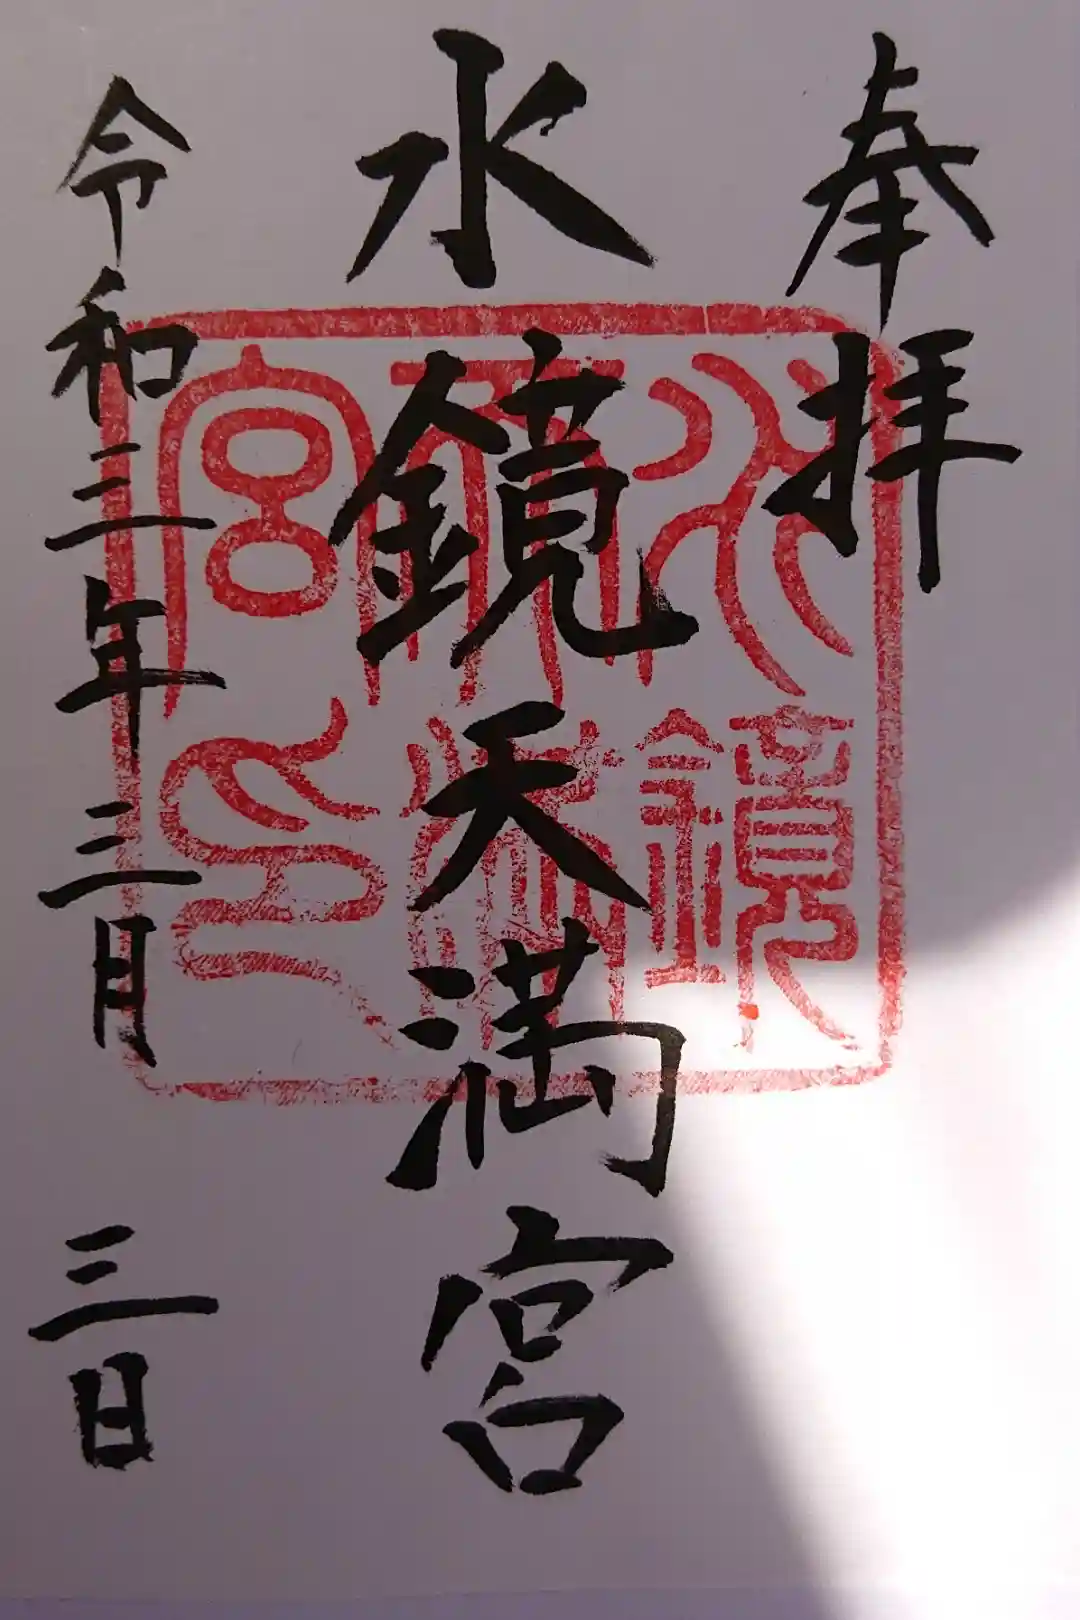 奉拝
水鏡天満宮
令和三年三月三日
水鏡
天満
宮印